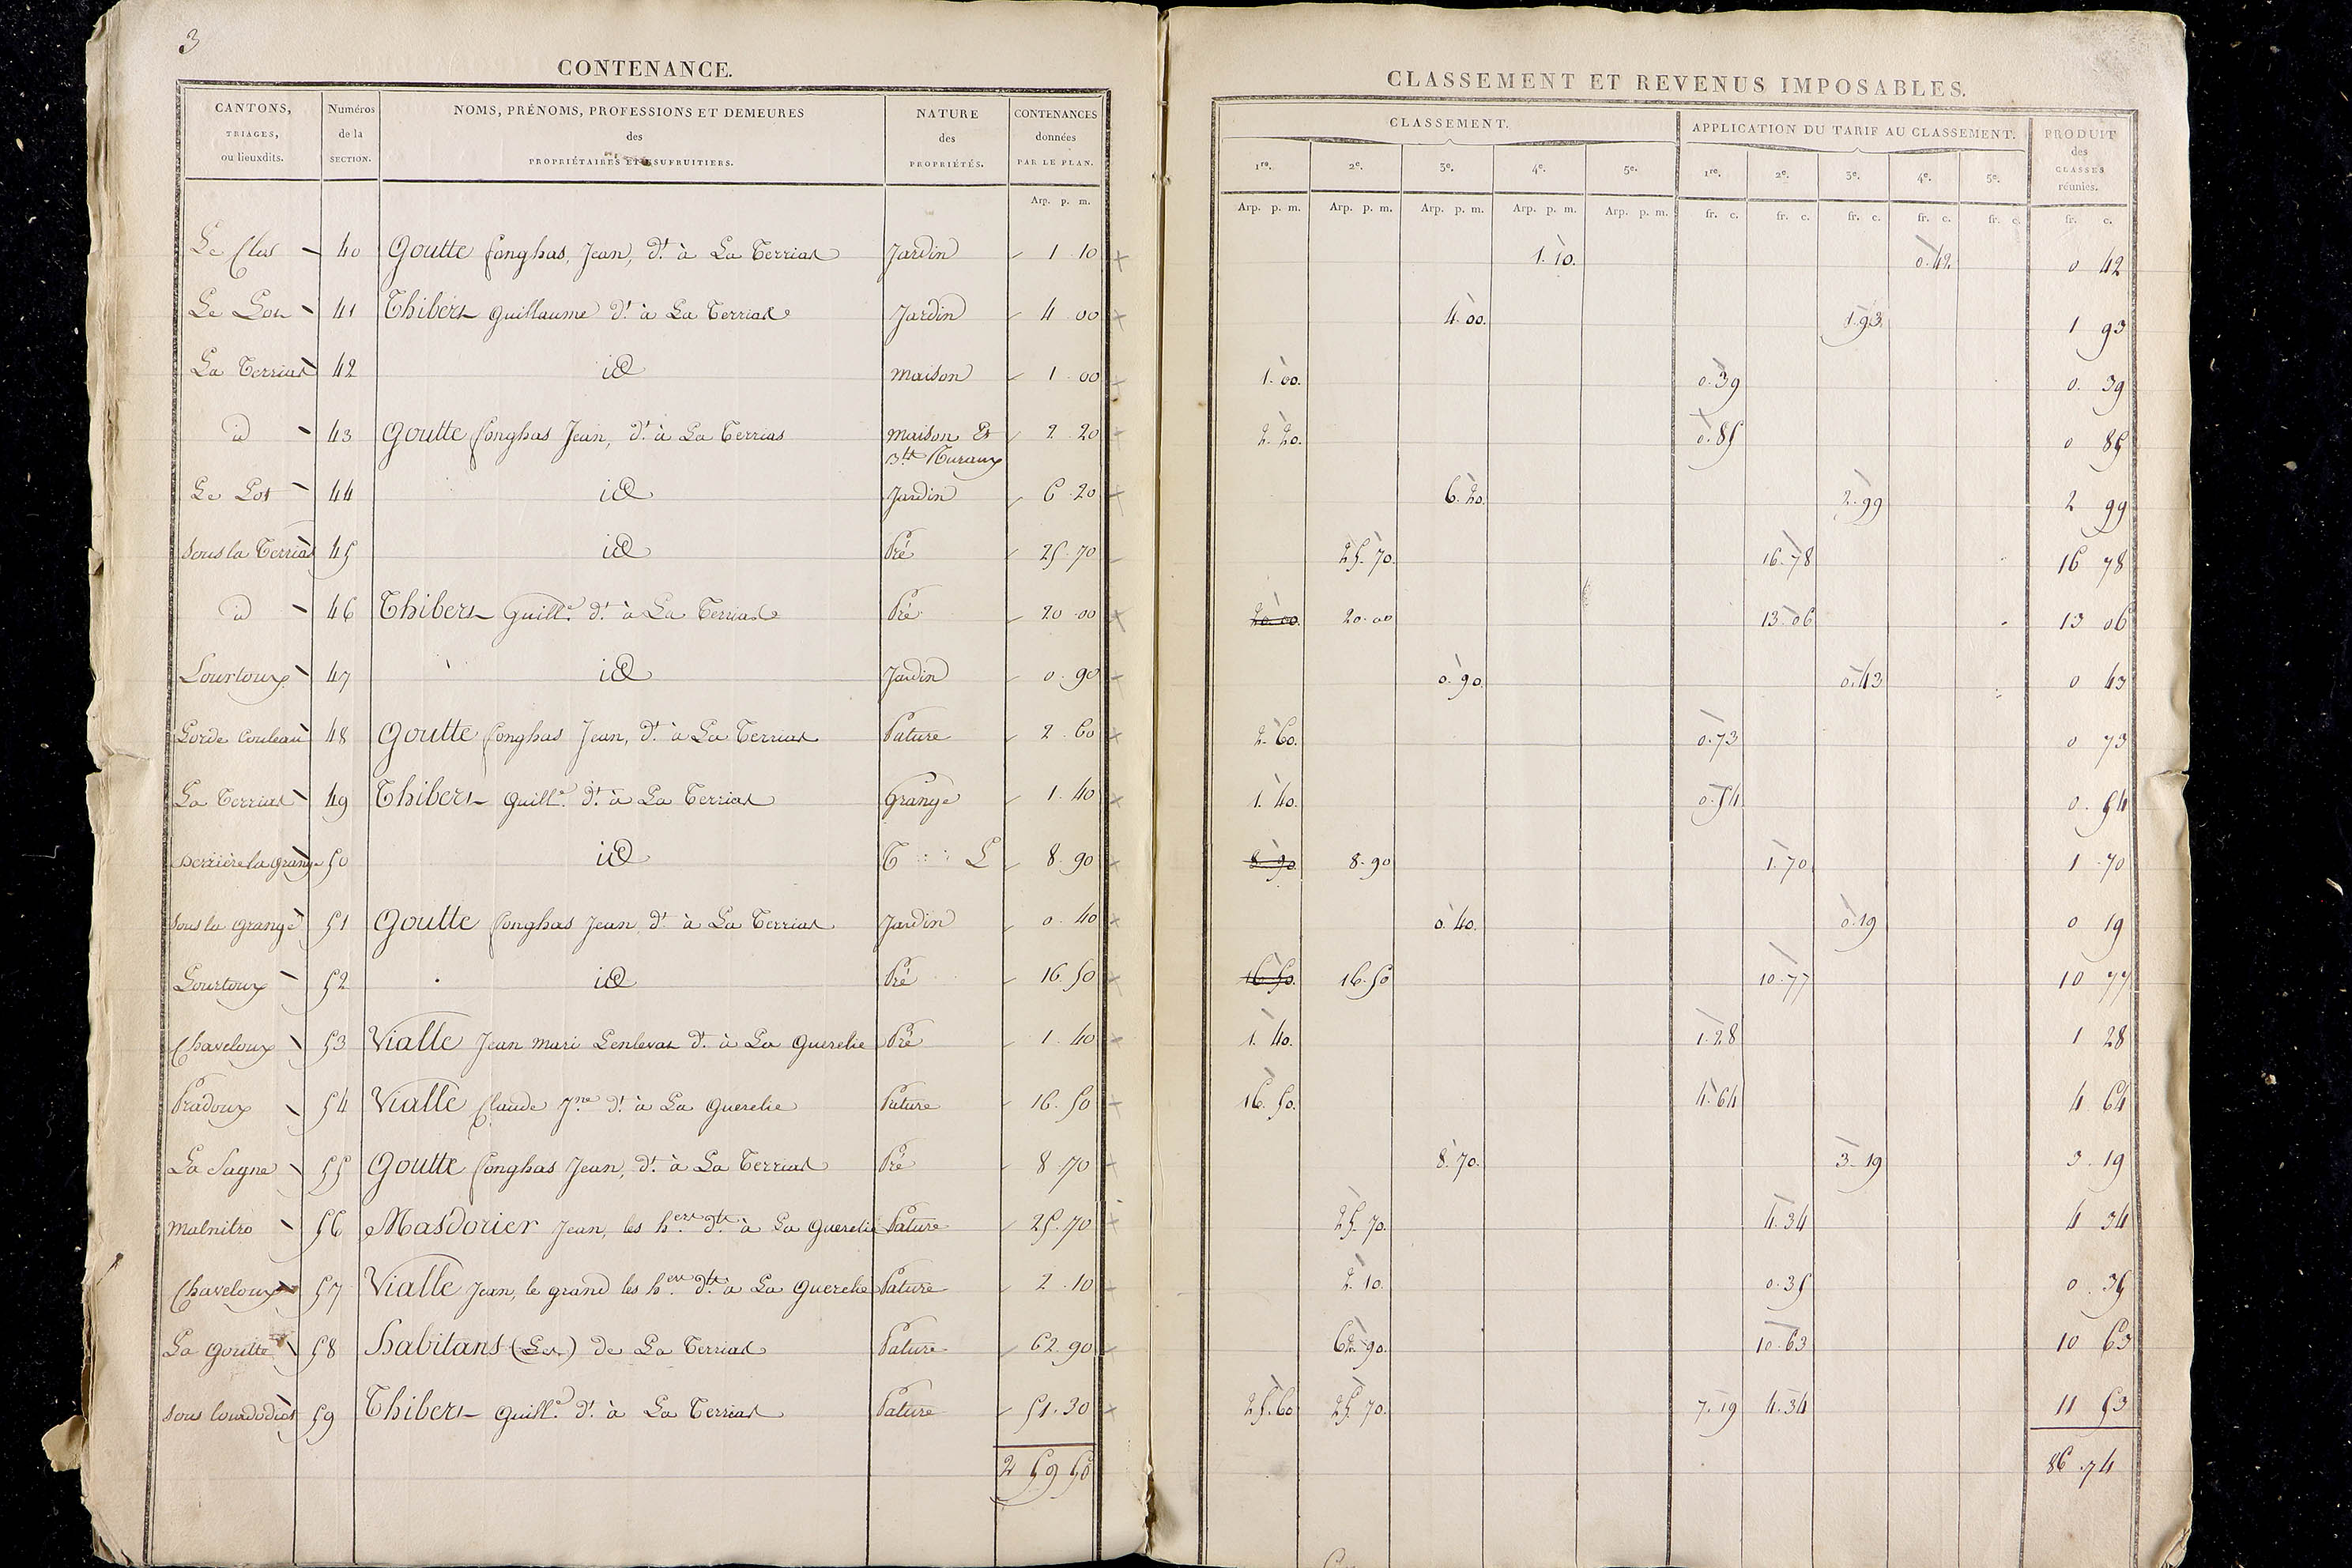 3
CONTENANCE.
CANTONS, TRIAGES, ou lieuxdits. | Numéros de la SECTION. | NOMS, PRÉNOMS, PROFESSIONS ET DEMEURES des PROPRIÉTAIRES ET USUFRUITIERS. | NATURE des PROPRIÉTÉS. | CONTENANCES données PAR LE PLAN.
Arp. p. m.
Le Clos 40 Goutte fonghas, Jean, dt. à La Terrias Jardin 1 10
Le Lot 41 Thibert Guillaume dt. à La Terrias Jardin 4 00
La Terrias 42 id maison 1 00
id 43 Goutte fonghas Jean, dt. à La Terrias maison &
Btt
Le Lot 44 id Jardin 6 20 
sous la Terrias 45 id Pré 25 70
id 46 Thibert Guille. dt. à La Terrias Pré 20 00
Lourtoux 47 id Jardin 0 90
48 Goutte fonghas Jean, dt. à La Terrias Pature 2 60
La Terrias 49 Thibert Guille. dt. à La Terrias Grange 1 40
Derrière la Grange 50 id T L 8 90
sous la Grange 51 Goutte fonghas Jean dt. à La Terrias Jardin 0 40
Lourtoux 52 id Pré 16 50
Chaveloux 53 Vialle Jean mari Lenlevat dt. à La Guerelie Pré 1 40
Pradoux 54 Vialle Claude Jne dt. à La Guerelie Pature 16 50
La Sagne 55 Goutte fonghas Jean, dt. à La Terrias Pré 8 70
Malnitro 56 Masdorier Jean, les hers dts à La Guerelie Pature 25 70
Chaveloux 57 Vialle Jean, le grand les hers dts à La Guerelie Pature 2 10
La Goutte 58 habitans (Les) de La Terrias Pature 62 90
sous 59 Thibert Guille. dt. à La Terrias Pature 51 30
2 59 50
CLASSEMENT ET REVENUS IMPOSABLES.
CLASSEMENT. | APPLICATION DU TARIF AU CLASSEMENT. | PRODUIT des CLASSES réunies.
1re. 2e. 3e. 4e. 5e. 1re. 2e. 3e. 4e. 5e.
Arp. p. m. Arp. p. m. Arp. p. m. Arp. p. m. Arp. p. m. fr. c. fr. c. fr. c. fr. c. fr. c. fr. c.
1. 10. 0. 42 0 42
4. 00. 1. 93 1 93
1. 00. 0. 39 0. 39
2. 20. 0. 85 0 85
6. 20. 2. 99 2 99
25. 70. 16. 78 16 78
20. 00. 20. 00 13. 06 13 06
0. 90. 0. 43 0 43
2. 60. 0. 73 0 73
1. 40. 0. 54 0. 54
8. 90. 8. 90 1. 70 1 70
0. 40. 0. 19 0 19
16. 50. 16. 50 10. 77 10 77
1. 40. 1. 28 1 28
16. 50. 4. 64 4 64
8. 70. 3. 19 3. 19
25. 70. 4. 34 4 34
2. 10. 0. 35 0. 35
62. 90. 10. 63 10 63
25. 60 25. 70. 7. 19 4. 34 11 53
86. 74